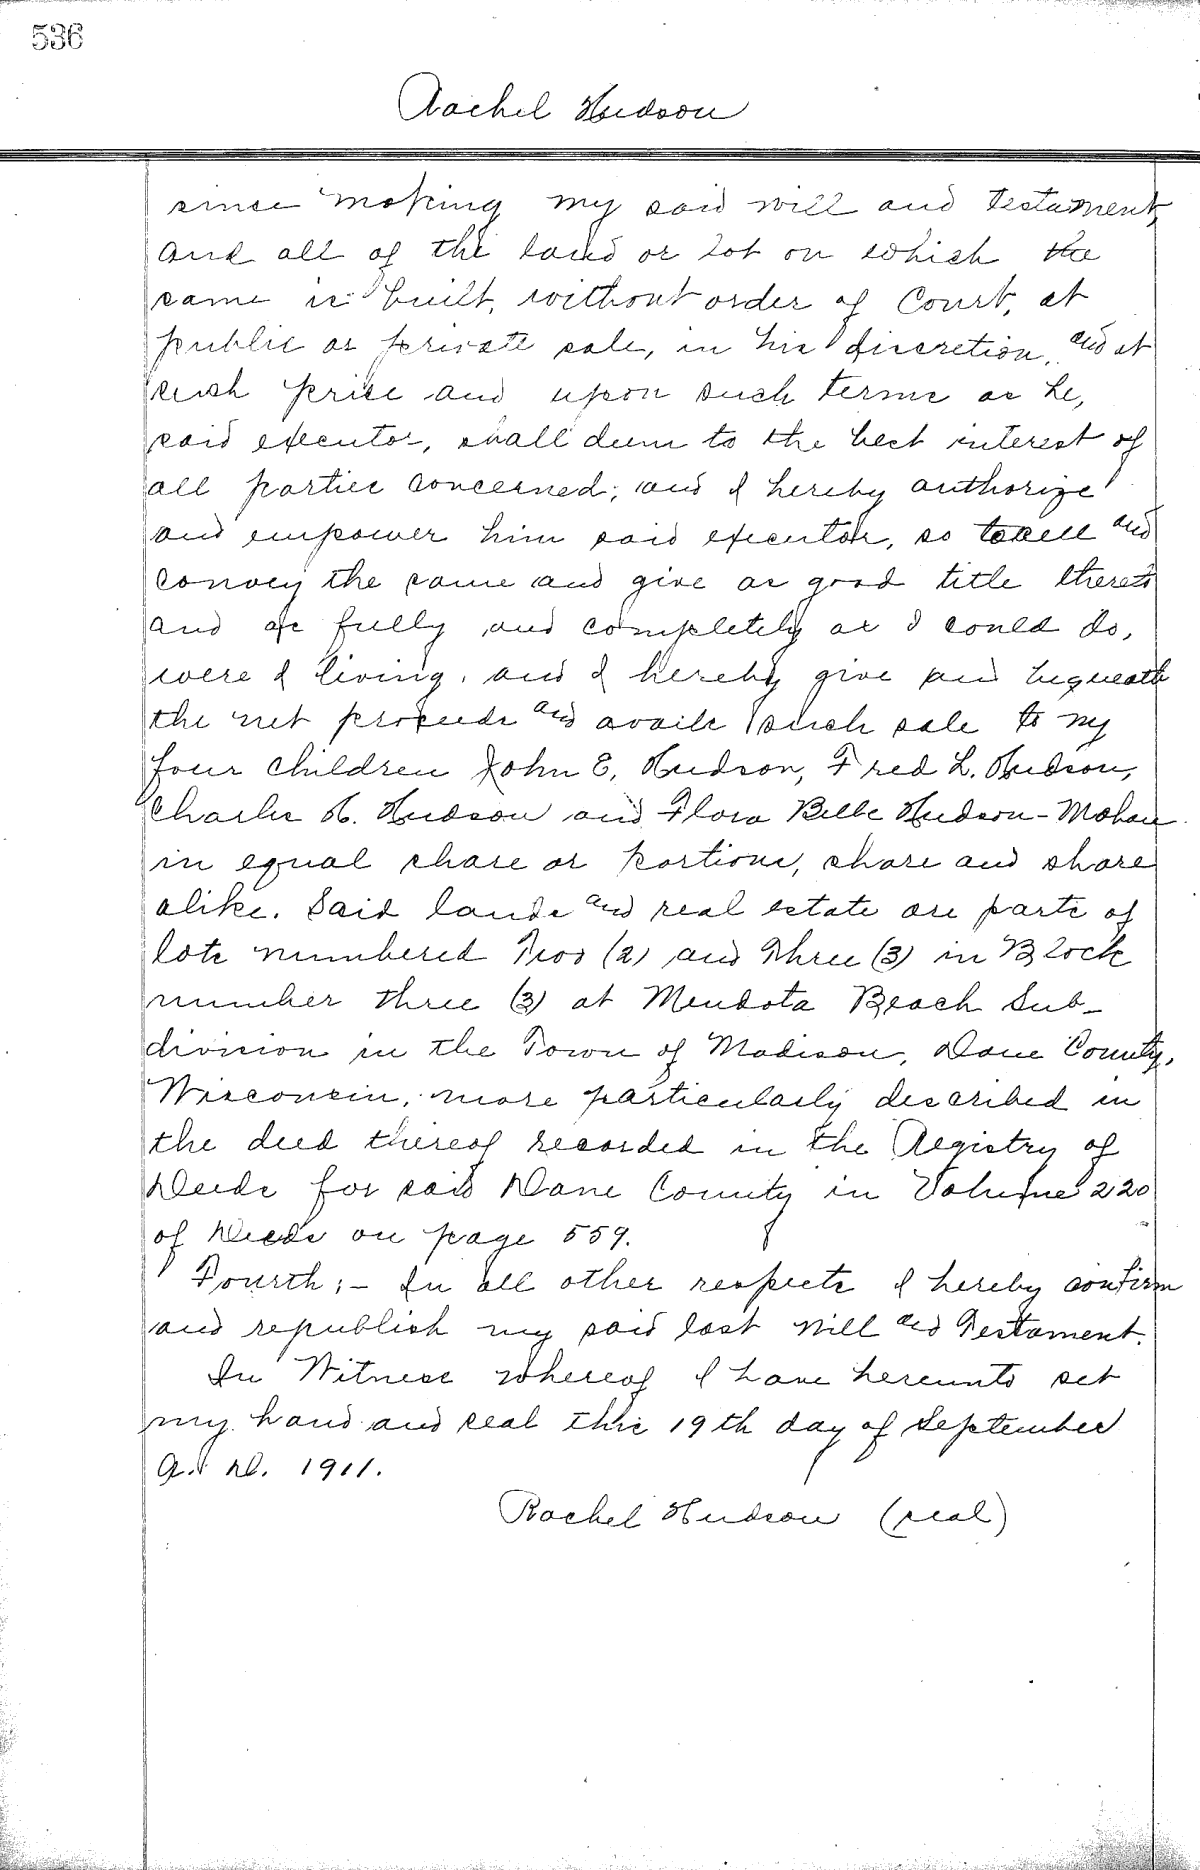 536
Rachel Hudson
since making my said will and Testament,
and all of the land or lot on which the
same is built, without order of Court, at
public or private sale, in his discretion, and at
such price and upon such terms as he,
said executor, shall deem to the best interest of
all parties concerned; and I hereby authorize
and empower him said executor, so to sell and
convey the same and give as good title thereto
and as fully and completely as I could do,
were I living, and I hereby give and bequeath
the net proceeds and avails such sale to my
four children John E. Hudson, Fred L. Hudson,
Charles H. Hudson and Flora Belle Hudson-Mohau
in equal share or portions, share and share
alike. Said lands and real estate are parts of
lots numbered Two (2) and Three (3) in Block
number three (3) at Mendota Beach Sub-
division in the Town of Madison, Dane County,
Wisconsin, more particularly described in
the deed thereof recorded in the Registry of
Deeds for said Dane County in Volume 220
of Deeds on page 559.
Fourth;- In all other respects I hereby confirm
and republish my said last Will and Testament.
In Witness whereof I have hereunto set
my hand and seal this 19th day of September
A. D. 1911.
Rachel Hudson (seal)